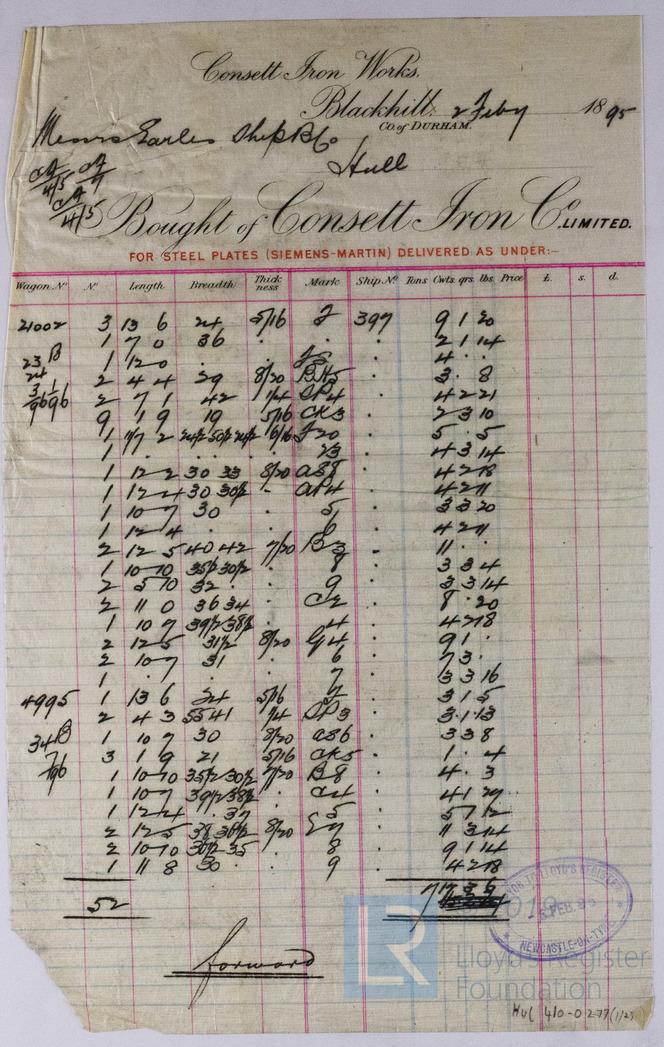 Consett Iron Works.
Blackhill. 2 Feby 1895
Co. of DURHAM.
Messrs Earles Ship B Co
Hull
Bought of Consett Iron Co. LIMITED.
FOR STEEL PLATES (SIEMENS-MARTIN) DELIVERED AS UNDER:—
Wagon No. No. Length Breadth Thickness Mark Ship No. Tons Cwts. qrs. lbs. Price £. s. d.
21002 3 13 6 24 5/16 J 397 9 1 20
1 7 0 36 . . . 2 1 14
23 B 1 12 0 . . . 4 . .
24 2 4 4 29 8/20 . 3 . 8
2 7 1 42 1/4 SP4 . 4 2 21
9 1 9 19 5/16 CK3 . 2 3 10
1 17 2 6/16 J20 . 5 . 5
1 . . . . 23 . 4 3 14
1 12 2 30 33 8/20 as8 . 4 2 18
1 12 4 30 30½ . aP4 . 4 2 11
1 10 7 30 . 5 . 3 3 20
1 12 4 . . 6 . 4 2 11
2 12 5 40 42 7/20 B3 . 11 . .
1 10 10 35½ 30½ . 8 . 3 3 4
2 5 10 32 . 9 . 3 3 14
2 11 0 36 34 . C2 . 8 . 20
1 10 7 39½ 38½ . 4 . 4 2 18
2 12 5 31½ 8/20 G4 . 9 1 .
2 10 7 31 . 6 . 7 3 .
1 . . . . 7 . 3 3 16
4995 1 13 6 24 5/16 . 3 1 5
2 4 3 55 41 1/4 SP3 . 3 . 1 . 13
34 B 1 10 7 30 8/20 as6 . 3 3 8
3 1 9 21 5/16 CK5 . 1 . 4
796 1 10 10 35½ 30½ 7/20 B8 . 4 . 3
1 10 7 39½ 38½ . C4 . 4 1 27
1 12 4 . 37 . 5 . 5 1 12
2 12 5 38 36½ 8/20 . 11 3 14
2 10 10 30½ 35 . 8 . 9 1 14
1 11 8 30 . 9 . 4 2 18
52 7 17 3 6
forward
LLOYD'S REGISTER
FEB. 95
NEWCASTLE-ON-TYNE
LR
Lloyd's Register
Foundation
HUL 410-0277 (1/2)